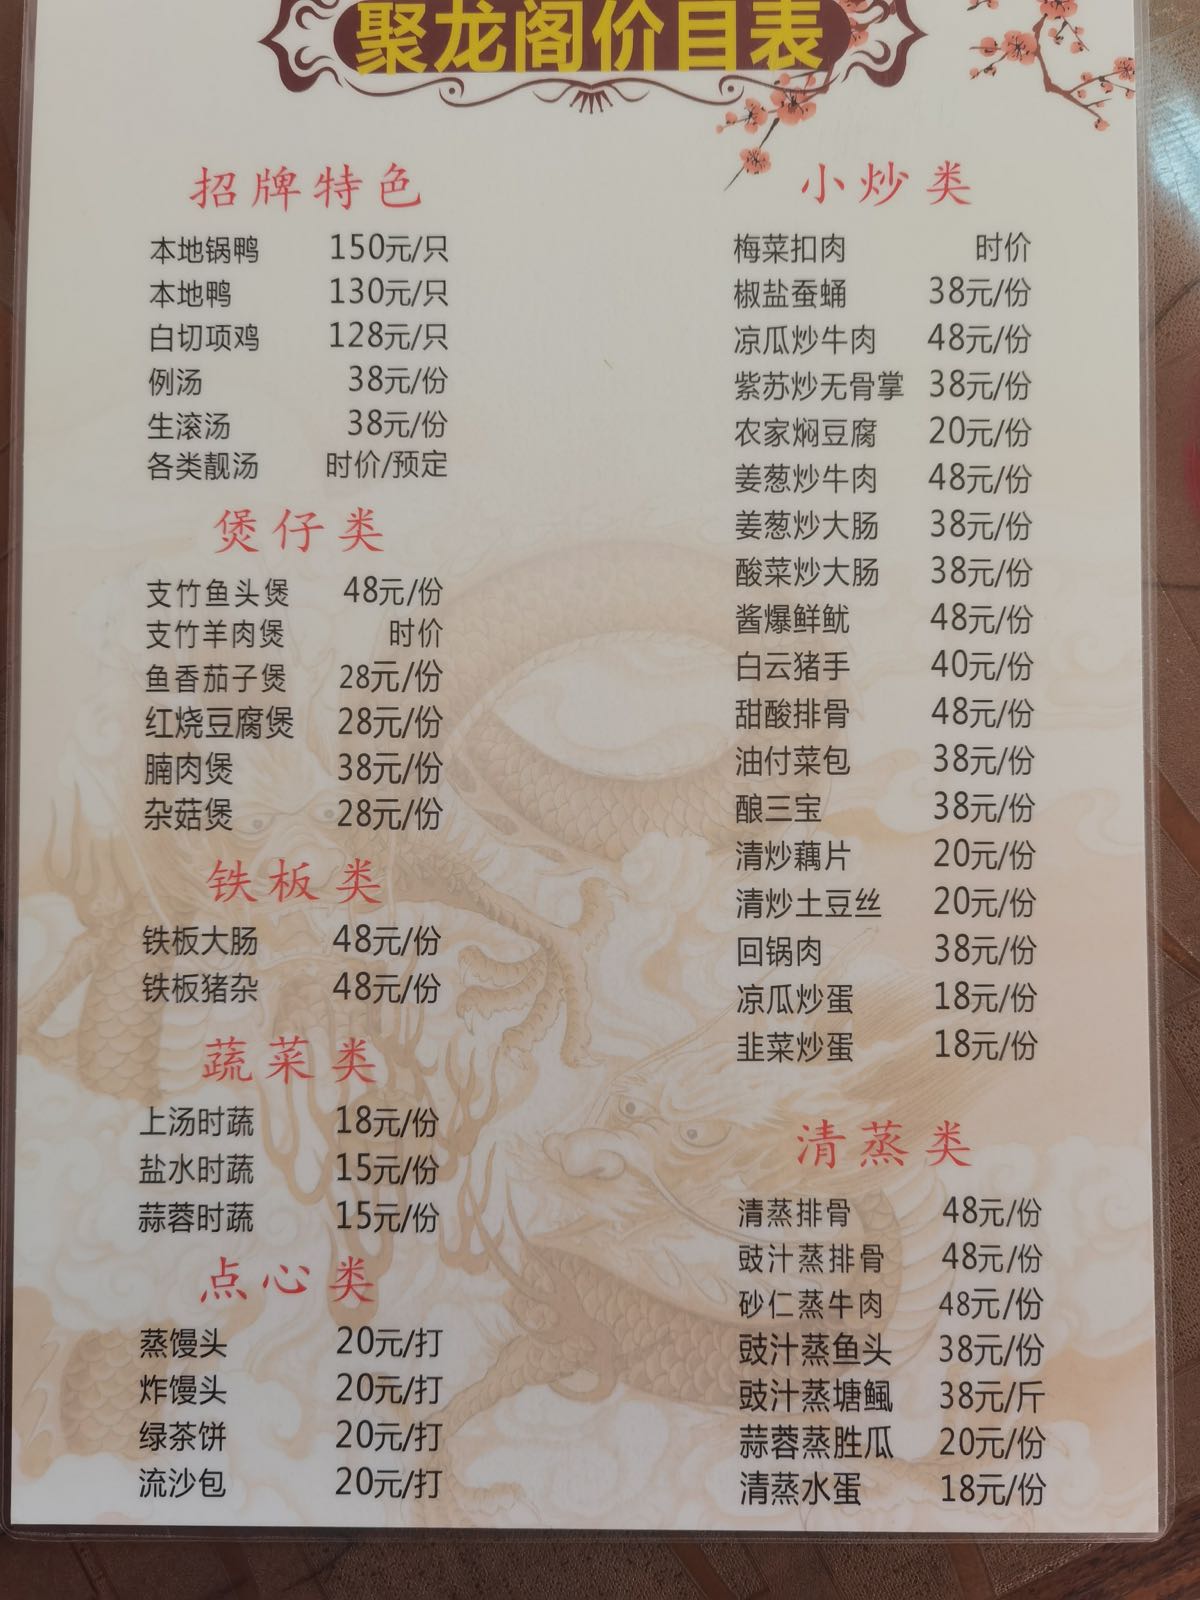 聚龙阁价目表
招牌特色
本地锅鸭 150元/只
本地鸭 130元/只
白切项鸡 128元/只
例汤 38元/份
生滚汤 38元/份
各类靓汤 时价/预定
煲仔类
支竹鱼头煲 48元/份
支竹羊肉煲 时价
鱼香茄子煲 28元/份
红烧豆腐煲 28元/份
腩肉煲 38元/份
杂菇煲 28元/份
铁板类
铁板大肠 48元/份
铁板猪杂 48元/份
蔬菜类
上汤时蔬 18元/份
盐水时蔬 15元/份
蒜蓉时蔬 15元/份
点心类
蒸馒头 20元/打
炸馒头 20元/打
绿茶饼 20元/打
流沙包 20元/打
小炒类
梅菜扣肉 时价
椒盐蚕蛹 38元/份
凉瓜炒牛肉 48元/份
紫苏炒无骨掌 38元/份
农家焖豆腐 20元/份
姜葱炒牛肉 48元/份
姜葱炒大肠 38元/份
酸菜炒大肠 38元/份
酱爆鲜鱿 48元/份
白云猪手 40元/份
甜酸排骨 48元/份
油付菜包 38元/份
酿三宝 38元/份
清炒藕片 20元/份
清炒土豆丝 20元/份
回锅肉 38元/份
凉瓜炒蛋 18元/份
韭菜炒蛋 18元/份
清蒸类
清蒸排骨 48元/份
豉汁蒸排骨 48元/份
砂仁蒸牛肉 48元/份
豉汁蒸鱼头 38元/份
豉汁蒸塘鲺 38元/斤
蒜蓉蒸胜瓜 20元/份
清蒸水蛋 18元/份